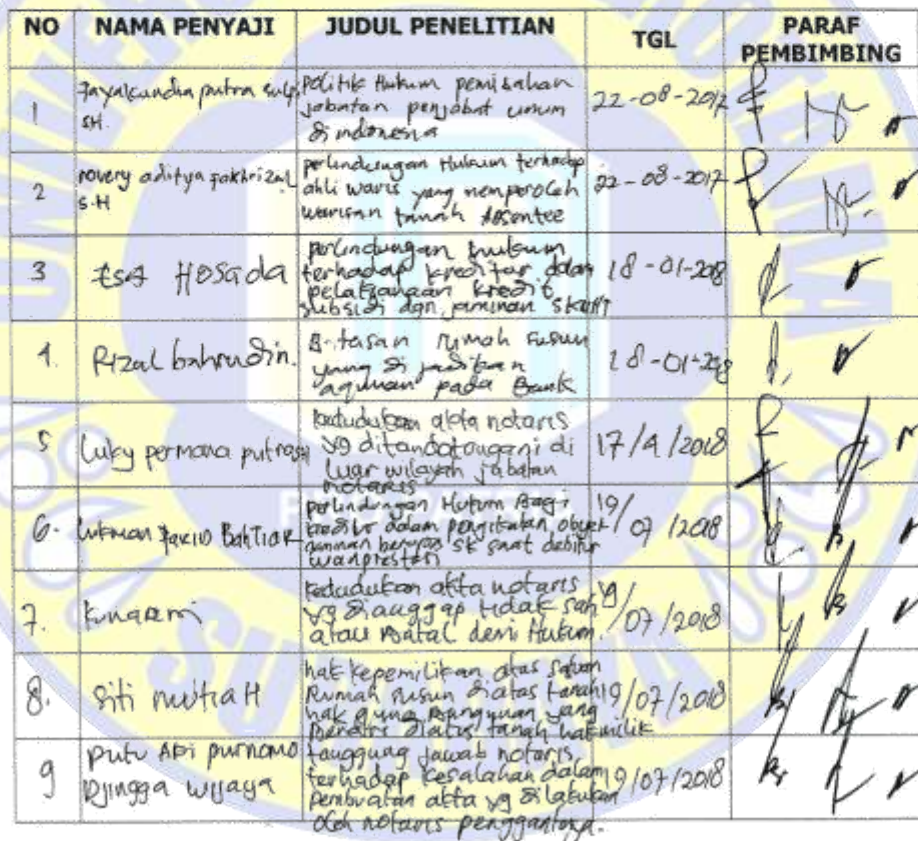 NO NAMA PENYAJI JUDUL PENELITIAN TGL PARAF PEMBIMBING
1 putra SH. Politik Hukum pemisahan jabatan penjabat umum di indonesia 22-08-2017
2 novery aditya fakhrizal S.H perlindungan Hukum terhadap ahli waris yang memperoleh warisan tanah absentee 22-08-2017
3 Hosada perlindungan hukum terhadap kreditur dalam pelaksanaan kredit subsidi dgn jaminan 18-01-2018
4. Rizal bahrudin. rumah susun yang di jadikan agunan pada Bank 18-01-
5 Luky permana kedudukan akta notaris yg ditandatangani di luar wilayah jabatan notaris 17/4/2018
6. Lukman Bahtiar perlindungan Hukum Bagi kreditur dalam pengikatan objek jaminan berupa SK saat debitur wanprestasi 19/07/2018
7. kedudukan akta notaris yg dianggap tidak sah atau Batal demi Hukum. 19/07/2018
8. Siti mutiaH hak kepemilikan atas satuan Rumah susun diatas tanah hak guna Bangunan yang Berdiri diatas tanah hak milik 19/07/2018
9 putu ABi purnomo Djingga wijaya tanggung jawab notaris terhadap kesalahan dalam pembuatan akta yg dilakukan oleh notaris penggantinya. 19/07/2018
UNIVER
SURA